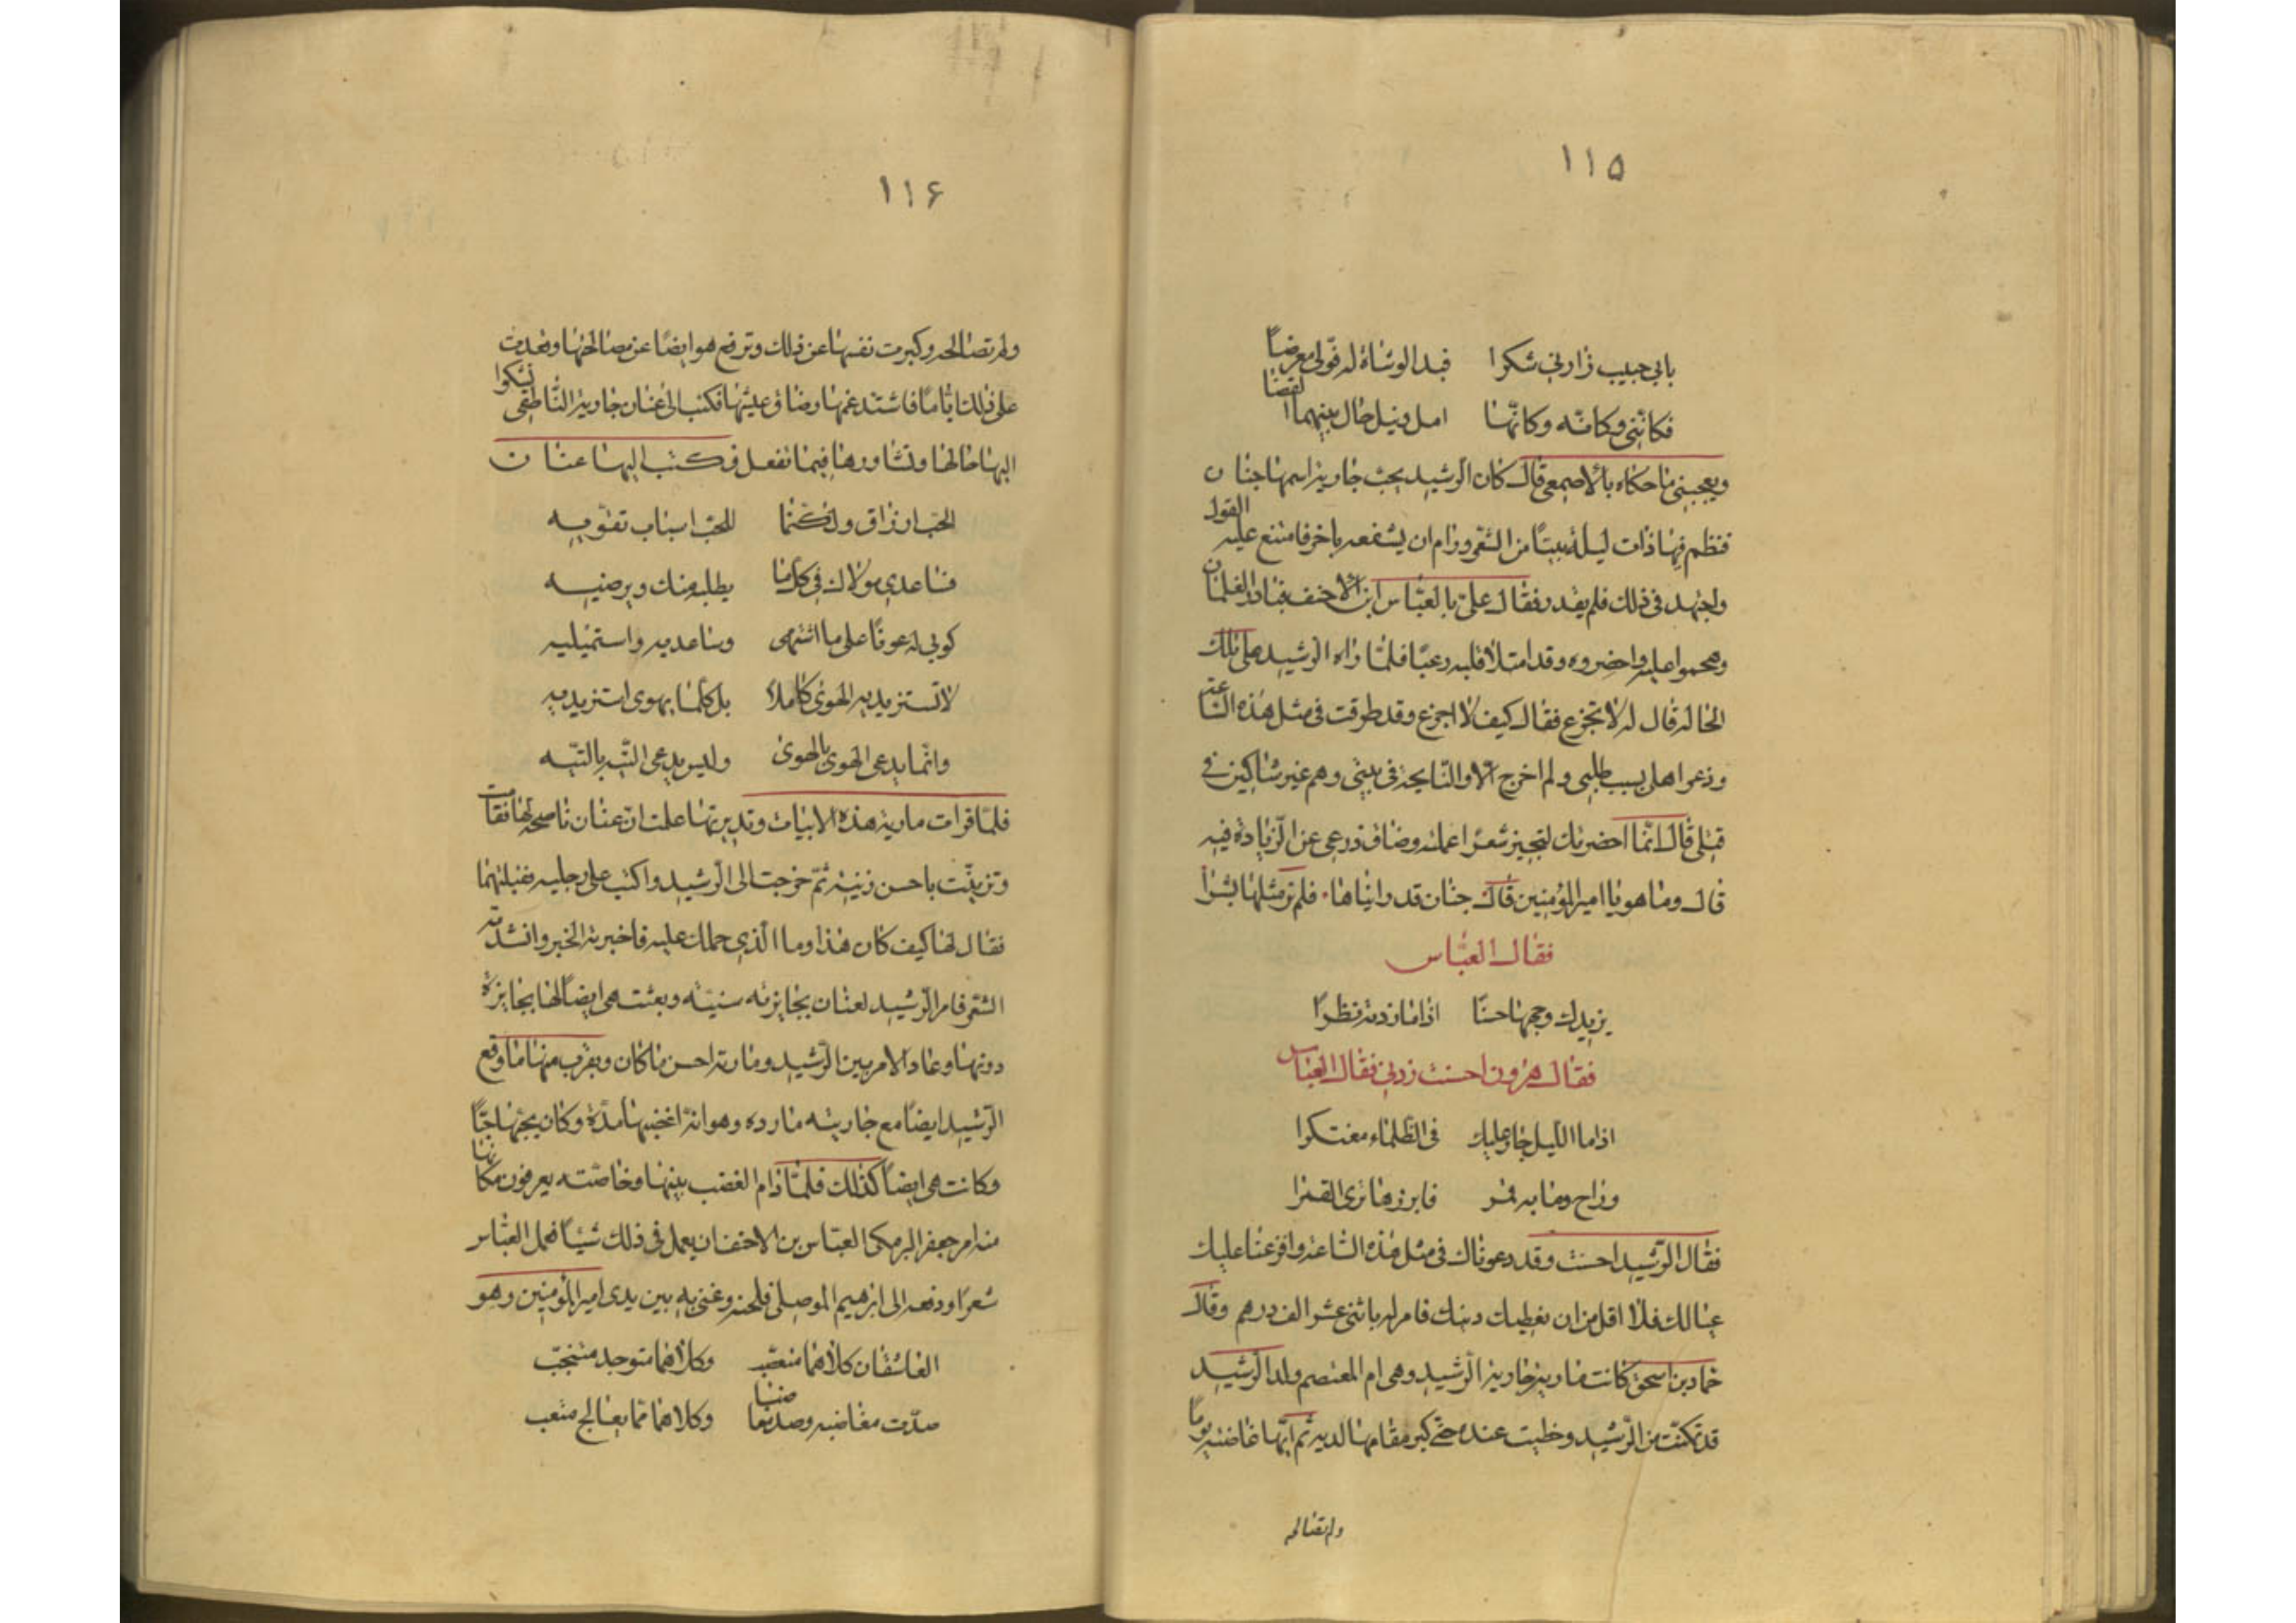 ١١٥
بابي حبيب زارني شكرا فبدا الوشاة له فولى معرضا
فكانني وكانه وكانها امل ونيل حال بينهما القضا
ويعجبني ما حكاه بالاصمعي قال كان الرشيد يحب جارية اسمها جنان
فنظم فيها ذات ليلة بيتا من الشعر ورام ان يشفعه باخر فامتنع عليه القول
واجتهد في ذلك فلم يقدر فقال علي بالعباس ابن الاحنف فبادر الغلمان
وهجموا عليه واحضروه وقد امتلا قلبه رعبا فلما راه الرشيد على تلك
الحالة قال له لا تجزع فقال كيف لا اجزع وقد طرقت في مثل هذه الساعة
وذعر اهلي بسبب طلبي ولم اخرج الا والنايحة في بيتي وهم غير شاكين في
قتلي قال انما احضرتك لتجيز شعرا عملته وضاق ذرعي عن الزيادة فيه
قال وما هو يا امير المؤمنين قال جنان قد رايناها فلم نر مثلها بشرا
فقال العباس
يزيدك وجهها حسنا اذا ما زدته نظرا
فقال هرون احسنت زدني فقال العباس
اذا ما الليل جار عليك في الظلماء معتكرا
وراح وما به قمر فابرزها ترى القمرا
فقال الرشيد احسنت وقد دعوناك في مثل هذه الساعة وافزعنا عليك
عيالك فلا اقل من ان نعطيك ديتك فامر له باثني عشر الف درهم وقال
حماد بن اسحق كانت مارية جارية الرشيد وهي ام المعتصم ولد الرشيد
قد تمكنت من الرشيد وحظيت عنده حتى كبر مقامها لديه ثم انها غاضبته يوما
ولم تصالحه
١١۶
ولم تصالحه وكبرت نفسها عن ذلك وترفع هو ايضا عن مصالحتها وتمادت
على ذلك اياما فاشتد غمها وضاق عيشها فكتبت الى عنان جارية الناطفي تشكوا
اليها حالها وتشاورها فيما تفعل فكتبت اليها عنان
الحب ارزاق ولكنما للحب اسباب تقويه
فساعدي مولاك في كل ما يطلبه منك ويرضيه
كوني له عونا على ما اشتهى وساعديه واستميليه
لا تستزيديه الهوى كاملا بل كلما يهوى استزيديه
وانما يدعى الهوى بالهوى وليس يدعى التيه بالتيه
فلما قرات مارية هذه الابيات وتدبرتها علمت ان عنان ناصحة لها فقامت
وتزينت باحسن زينة ثم خرجت الى الرشيد واكبت على رجليه فقبلتهما
فقال لها كيف كان هذا وما الذي حملك عليه فاخبرته الخبر وانشدته
الشعر فامر الرشيد لعنان بجايزته سنية وبعثت هي ايضا لها بجايزة
دونها وعاد الامر بين الرشيد ومارية احسن ما كان ويقرب منها ما وقع
الرشيد ايضا مع جاريته مارده وهو انه اغضبها مدة وكان يحبها حبا
وكانت هي ايضا كذلك فلما دام الغضب بينهما وخاصته يعرفون مكانها
منه امر جعفر البرمكي العباس بن الاحنف ان يعمل في ذلك شيئا فعمل العباس
شعرا ودفعه الى ابرهيم الموصلي فلحنه وغنى به بين يدى امير المؤمنين وهو
العاشقان كلاهما متعتب وكلاهما متوجد متجنب
صدت مغاضبة وصد مغاضبا وكلاهما مما يعالج متعب